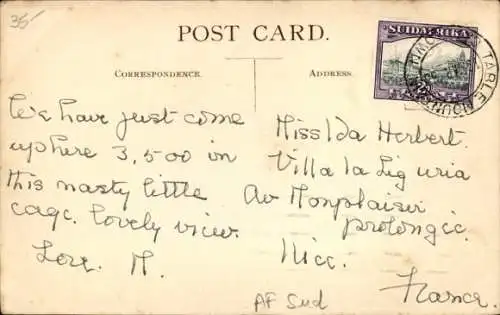 35/
POST CARD.
SUIDAFRIKA
TABLE MOUNTAIN
CORRESPONDENCE.
ADDRESS.
We have just come
up here 3,500 in
this nasty little
cage. Lovely view.
Love. M.
Miss Ida Herbert.
Villa la Liguria
Av Monplaisir
prolongée.
Nice.
France.
AF Sud